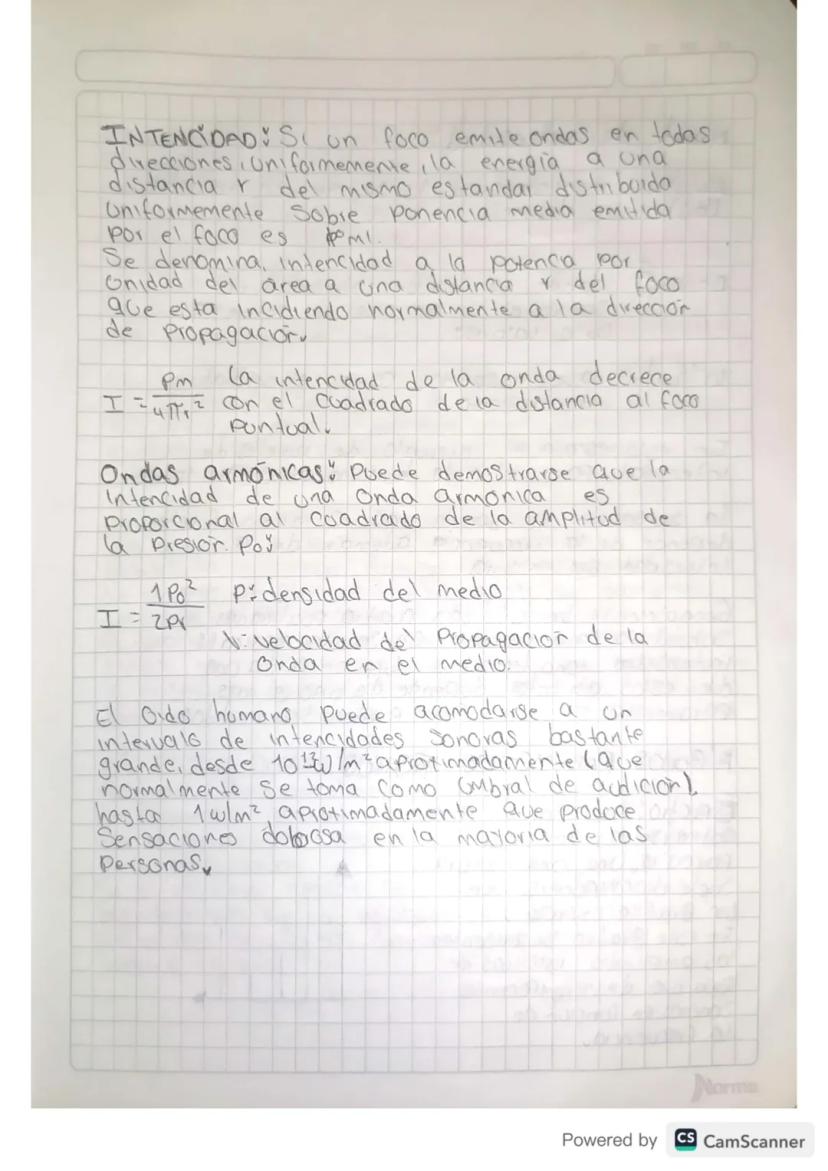 INTENCIDAD: Si un foco emite ondas en todas
direcciones, uniformemente, la energía a una
distancia r del mismo estandar distribuido
Uniformemente Sobre Ponencia media emitida
Por el foco es
Se denomina, intencidad a la potencia por
Unidad del área a una distancia r del foco
que esta incidiendo normalmente a la dirección
de Propagación.
I = Pm / 4πr² La intencidad de la onda decrece
con el cuadrado de la distancia al foco
puntual.
Ondas armónicas: Puede demostrarse que la
Intencidad de una Onda armonica es
Proporcional al Cuadrado de la amplitud de
la Presion Po:
I = 1Po² / 2Pv P: densidad del medio
V: velocidad de Propagación de la
Onda en el medio.
El Oido humano, Puede acomodarse a un
intervalo de intencidades sonoras bastante
grande, desde 10¹²W/m² aprotimadamente (que
normalmente se toma como Umbral de audición),
hasta 1w/m² aprotimadamente que produce
Sensaciones dolorosa en la mayoria de las
Personas.
Norma
Powered by CS CamScanner